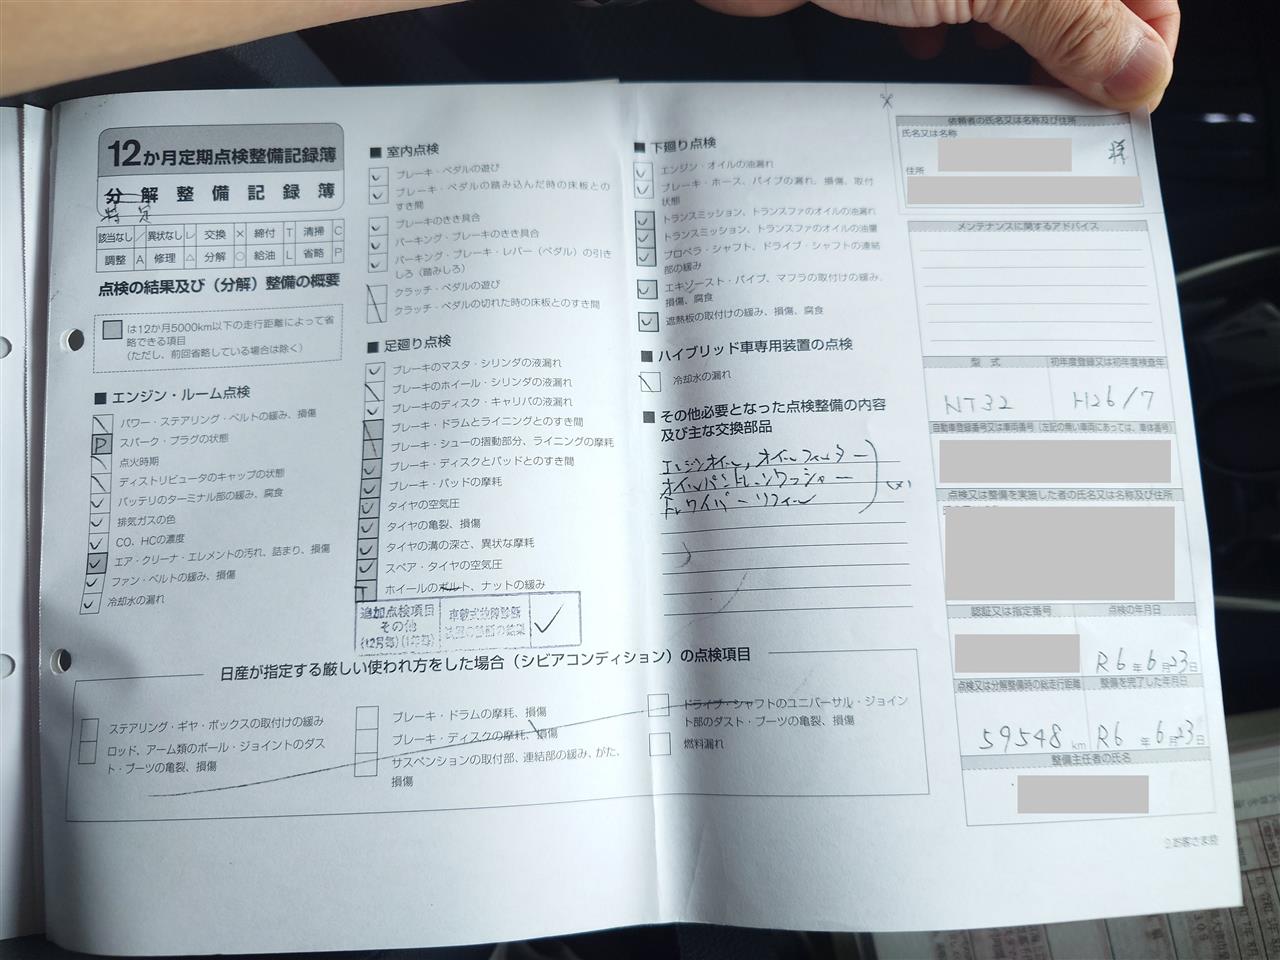 12か月定期点検整備記録簿
分解整備記録簿
特定
該当なし ／ 異状なし レ 交換 × 締付 T 清掃 C
調整 A 修理 △ 分解 ○ 給油 L 省略 P
点検の結果及び（分解）整備の概要
は12か月5000km以下の走行距離によって省
略できる項目
（ただし、前回省略している場合は除く）
■ エンジン・ルーム点検
パワー・ステアリング・ベルトの緩み、損傷
P スパーク・プラグの状態
点火時期
ディストリビュータのキャップの状態
バッテリのターミナル部の緩み、腐食
排気ガスの色
CO、HCの濃度
エア・クリーナ・エレメントの汚れ、詰まり、損傷
ファン・ベルトの緩み、損傷
冷却水の漏れ
■ 室内点検
ブレーキ・ペダルの遊び
ブレーキ・ペダルの踏み込んだ時の床板との
すき間
ブレーキのきき具合
パーキング・ブレーキのきき具合
パーキング・ブレーキ・レバー（ペダル）の引き
しろ（踏みしろ）
クラッチ・ペダルの遊び
クラッチ・ペダルの切れた時の床板とのすき間
■ 足廻り点検
ブレーキのマスタ・シリンダの液漏れ
ブレーキのホイール・シリンダの液漏れ
ブレーキのディスク・キャリパの液漏れ
ブレーキ・ドラムとライニングとのすき間
ブレーキ・シューの摺動部分、ライニングの摩耗
ブレーキ・ディスクとパッドとのすき間
ブレーキ・パッドの摩耗
タイヤの空気圧
タイヤの亀裂、損傷
タイヤの溝の深さ、異状な摩耗
スペア・タイヤの空気圧
T ホイールのボルト、ナットの緩み
追加点検項目
その他
(12月毎)(1年毎)
車載式故障診断
装置の診断の結果
■ 下廻り点検
エンジン・オイルの油漏れ
ブレーキ・ホース、パイプの漏れ、損傷、取付
状態
トランスミッション、トランスファのオイルの油漏れ
トランスミッション、トランスファのオイルの油量
プロペラ・シャフト、ドライブ・シャフトの連結
部の緩み
エキゾースト・パイプ、マフラの取付けの緩み、
損傷、腐食
遮熱板の取付けの緩み、損傷、腐食
■ ハイブリッド車専用装置の点検
冷却水の漏れ
■ その他必要となった点検整備の内容
及び主な交換部品
エンジンオイル、オイルフィルター
オイルパンドレンワッシャー
ワイパーリフィル
日産が指定する厳しい使われ方をした場合（シビアコンディション）の点検項目
ステアリング・ギヤ・ボックスの取付けの緩み
ロッド、アーム類のボール・ジョイントのダス
ト・ブーツの亀裂、損傷
ブレーキ・ドラムの摩耗、損傷
ブレーキ・ディスクの摩耗、損傷
サスペンションの取付部、連結部の緩み、がた、
損傷
ドライブ・シャフトのユニバーサル・ジョイン
ト部のダスト・ブーツの亀裂、損傷
燃料漏れ
依頼者の氏名又は名称及び住所
氏名又は名称
様
住所
メンテナンスに関するアドバイス
型式 初年度登録又は初年度検査年
NT32 H26/7
自動車登録番号又は車両番号（左記の無い車両にあっては、車体番号）
点検又は整備を実施した者の氏名又は名称及び住所
認証又は指定番号 点検の年月日
R6年6月23日
点検又は分解整備時の総走行距離 整備を完了した年月日
59548 km R6年6月23日
整備主任者の氏名
お客さま控